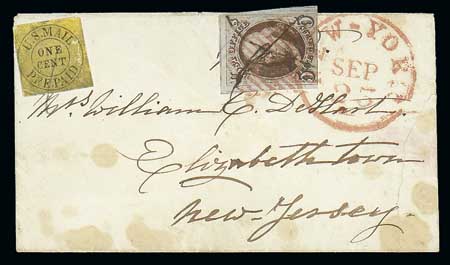 U.S. MAIL
ONE
CENT
PREPAID
NEW-YORK
SEP
25
Mrs William C. DeHart
Elizabethtown
New-Jersey.